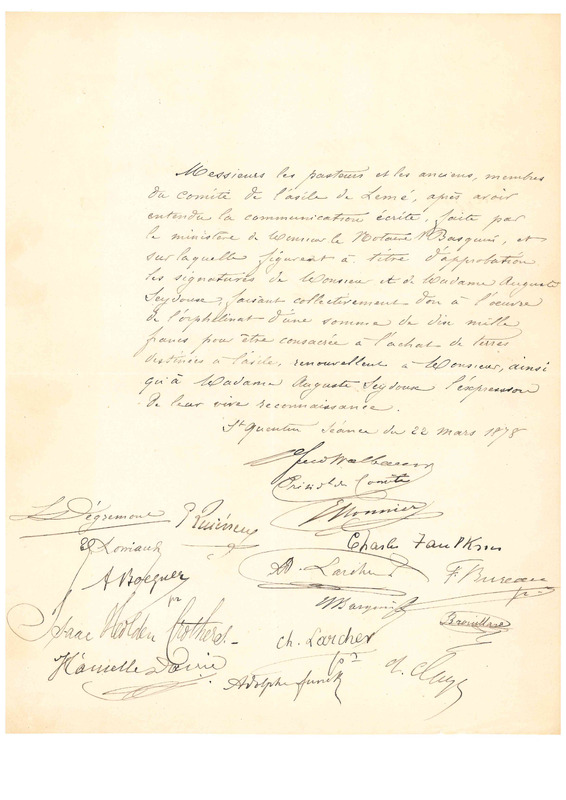 Messieurs les pasteurs et les anciens, membres
du comité de l'asile de Lemé, après avoir
entendu la communication écrite, faite par
le ministère de Monsieur le Notaire, et
sur laquelle figurent à titre d'approbation
les signatures de Monsieur et de Madame Auguste
Seydoux, faisant collectivement don à l'œuvre
de l'orphelinat d'une somme de dix mille
francs pour être consacrée à l'achat de terres
destinées à l'asile, renouvellent à Monsieur, ainsi
qu'à Madame Auguste Seydoux l'expression
de leur vive reconnaissance.
St Quentin Séance du 22 mars 1878
Présidt du Comité
L Dégremont
Monnier
Charles Faulkner
A Bocquet
D. Larcher
F. Bureau
Isaac Holden
Ch. Larcher
Adolphe Junck